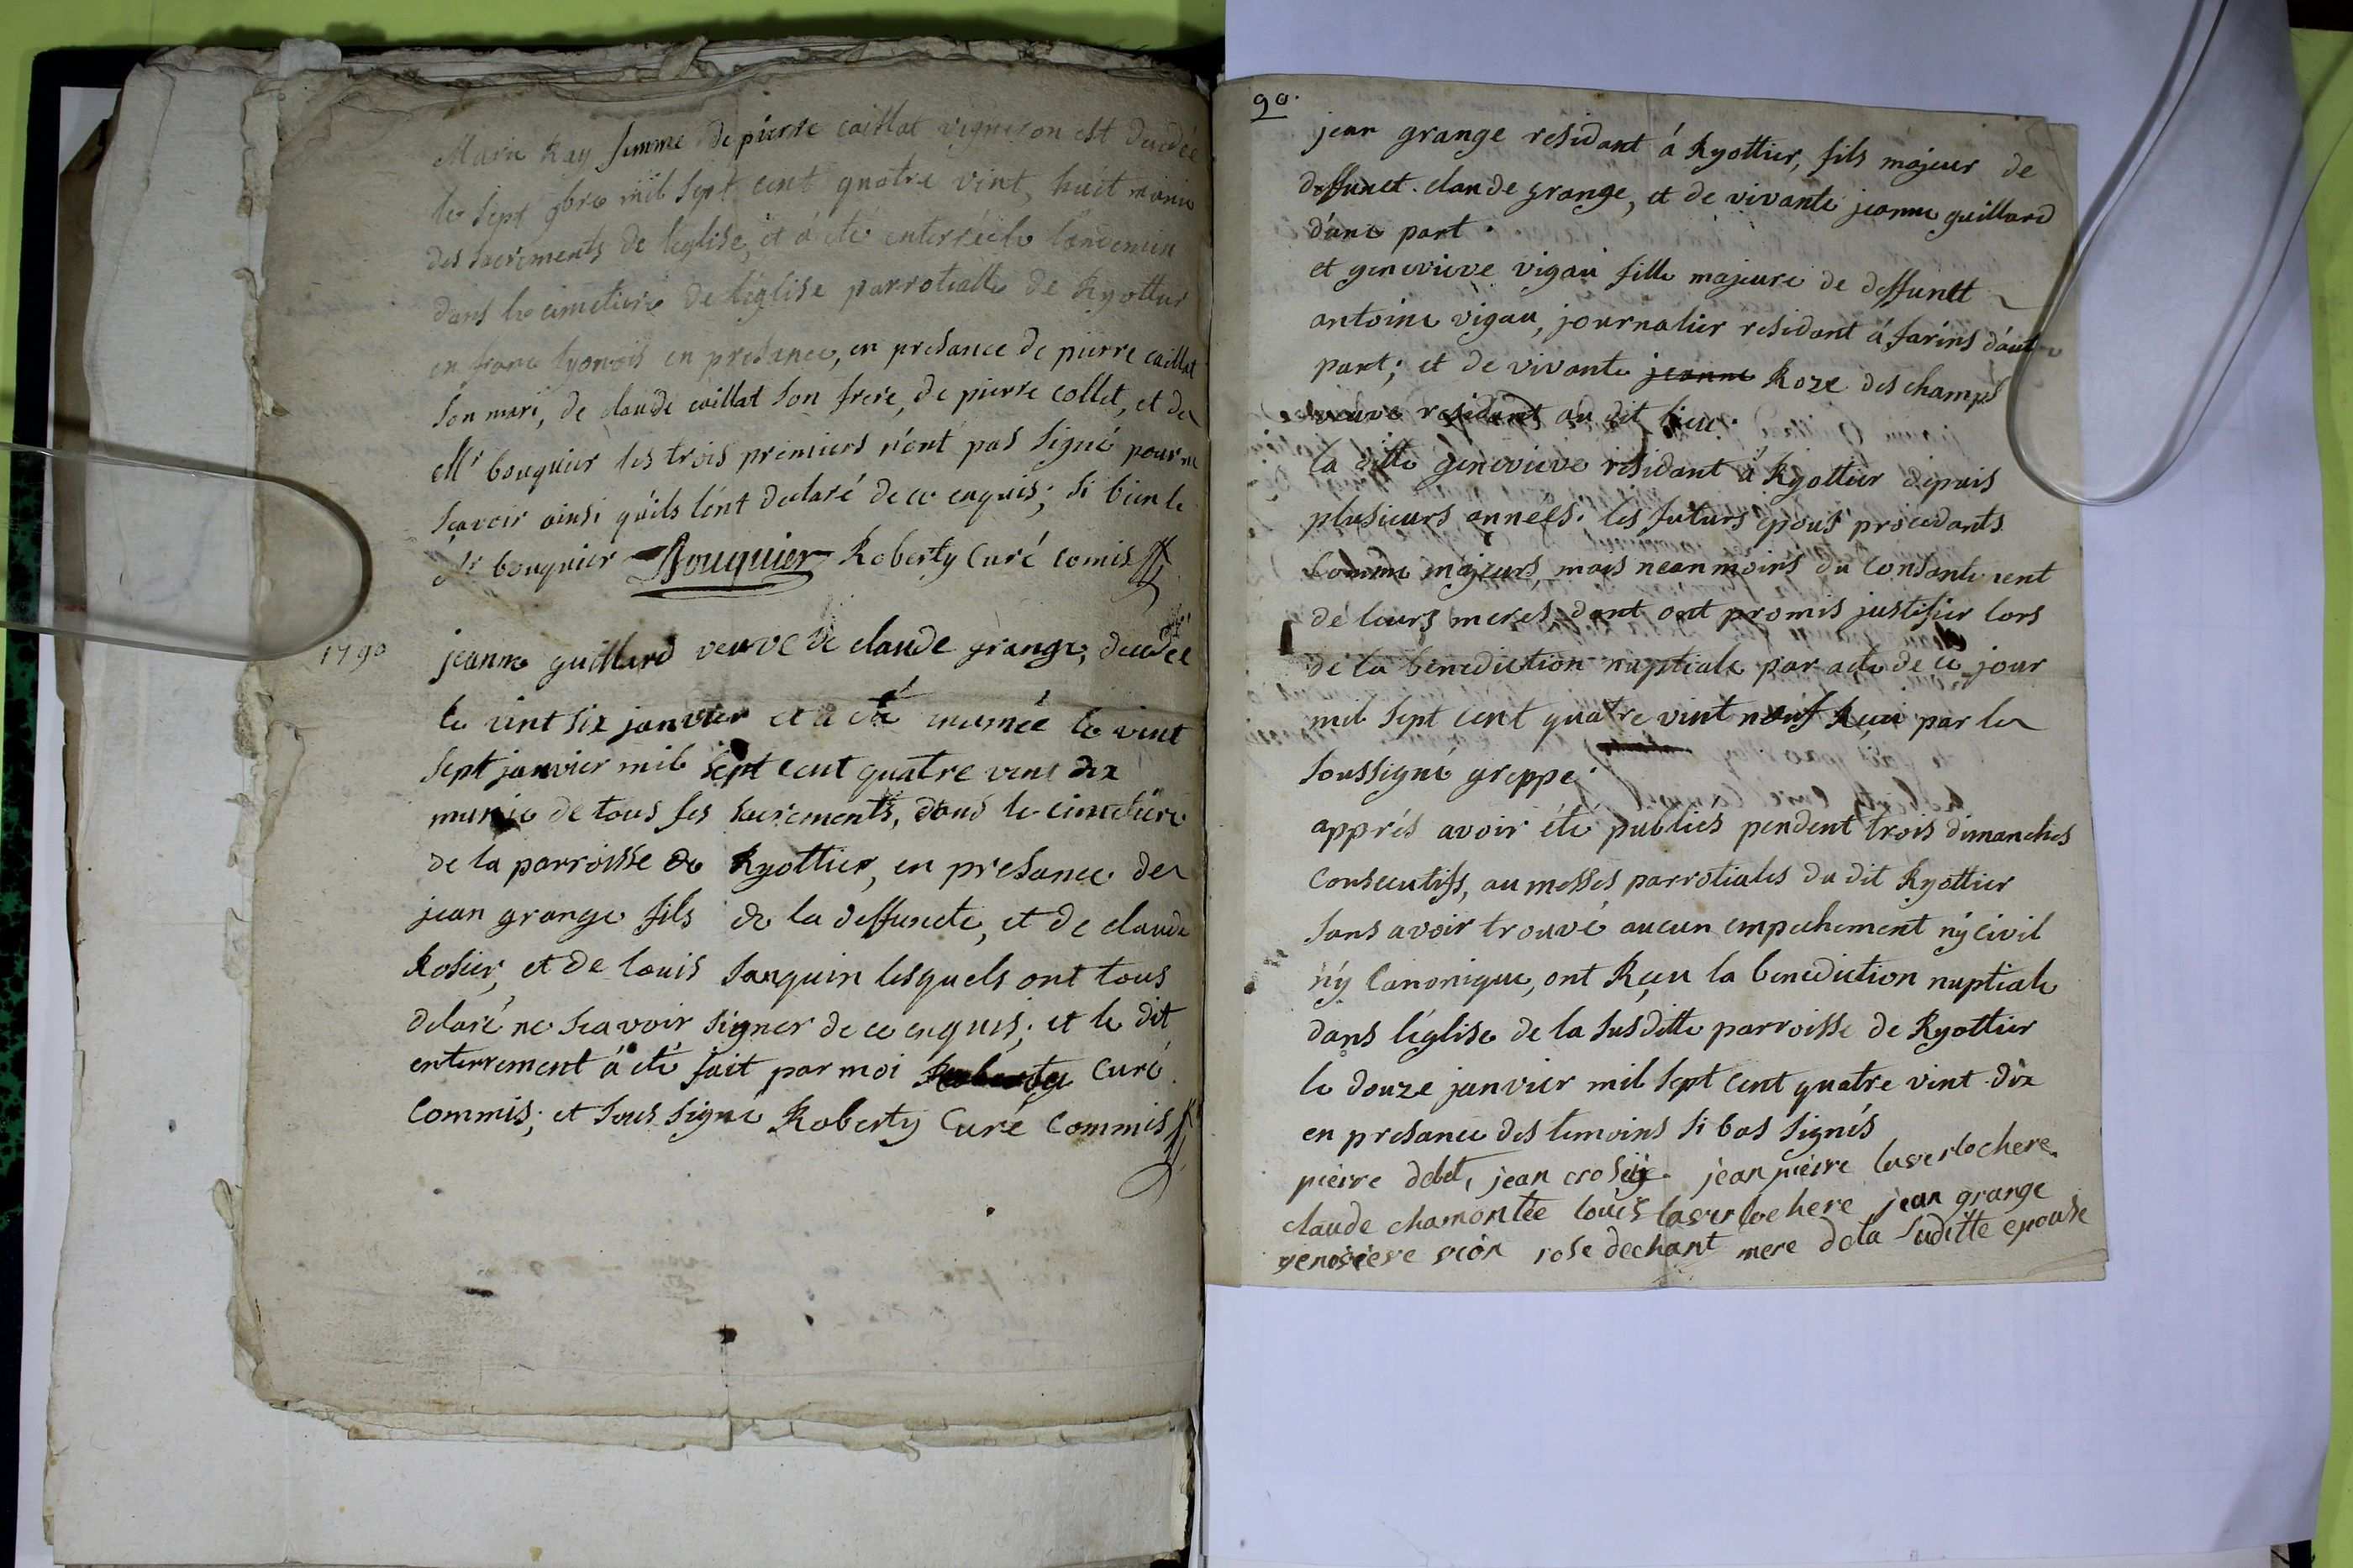 Marie Ray femme de pierre caillat vigneron est decedée
le sept 9bre mil sept cent quatre vint huit munie
des sacrements de leglise, et á eté enterrée le landemain
dans le cimetiere de léglise parrotialle de Ryottier
en franc lyonois en presance, en presance de pierre caillat
son mari, de claude caillat son frere, de pierre collet, et de
Mr bouquier les trois premiers n'ont pas signé pour ne
scavoir ainsi qu'ils l'ont declaré de ce enquis; si bien le
Sr bouquier Bouquier Roberty Curé comis
1790 jeanne guillard veuve de claude grange, decedée
le vint six janvier et a eté inumée le vint
sept janvier mil sept cent quatre vint dix
munie de tous ses sacrements, dans le cimetiere
de la parroisse de Ryottier, en presance de
jean grange fils de la deffuncte, et de claude
Rosier, et de louis sanquin lesquels ont tous
delaré ne scavoir signer de ce enquis; et le dit
enterrement á eté fait par moi Roberty Curé
Commis; et sous signé Roberty Curé Commis
90.
jean grange residant á Ryottier, fils majeur de
deffunct claude grange, et de vivante jeanne guillard
d'une part.
et genevieve vigau fille majeure de deffunct
antoine vigau, journalier residant á farins d'autre
part; et de vivante jeanne Roze des champs
veuve residant au dit lieu.
la ditte genevieve residant á Ryottier depuis
plusieurs années. les futurs epous procedants
comme majeurs, mais neanmoins du consantement
de leurs meres, dont ont promis justifier lors
de la benediction nuptiale par acte de ce jour
mil sept cent quatre vint neuf Reçu par le
soussigné greppe.
apprés avoir été publiés pendent trois dimanches
consecutifs, au messes parrotiales du dit Ryottier
sans avoir trouvé aucun empechement ny civil
n'y Canonique, ont Reçu la benediction nuptiale
dans l'église de la susditte parroisse de Ryottier
le douze janvier mil sept cent quatre vint dix
en presance des temoins si bas signés
pierre debet, jean jean pierre laverlochere.
claude chamontée louis laverlochere jean grange
genevieve vion rose dechant mere dela suditte epouse